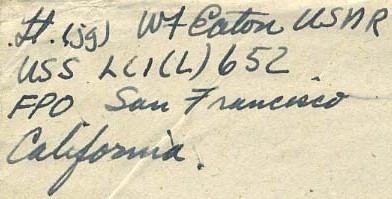 Lt. (jg) WF Eaton USNR
USS LCI(L) 652
FPO San Francisco
California.